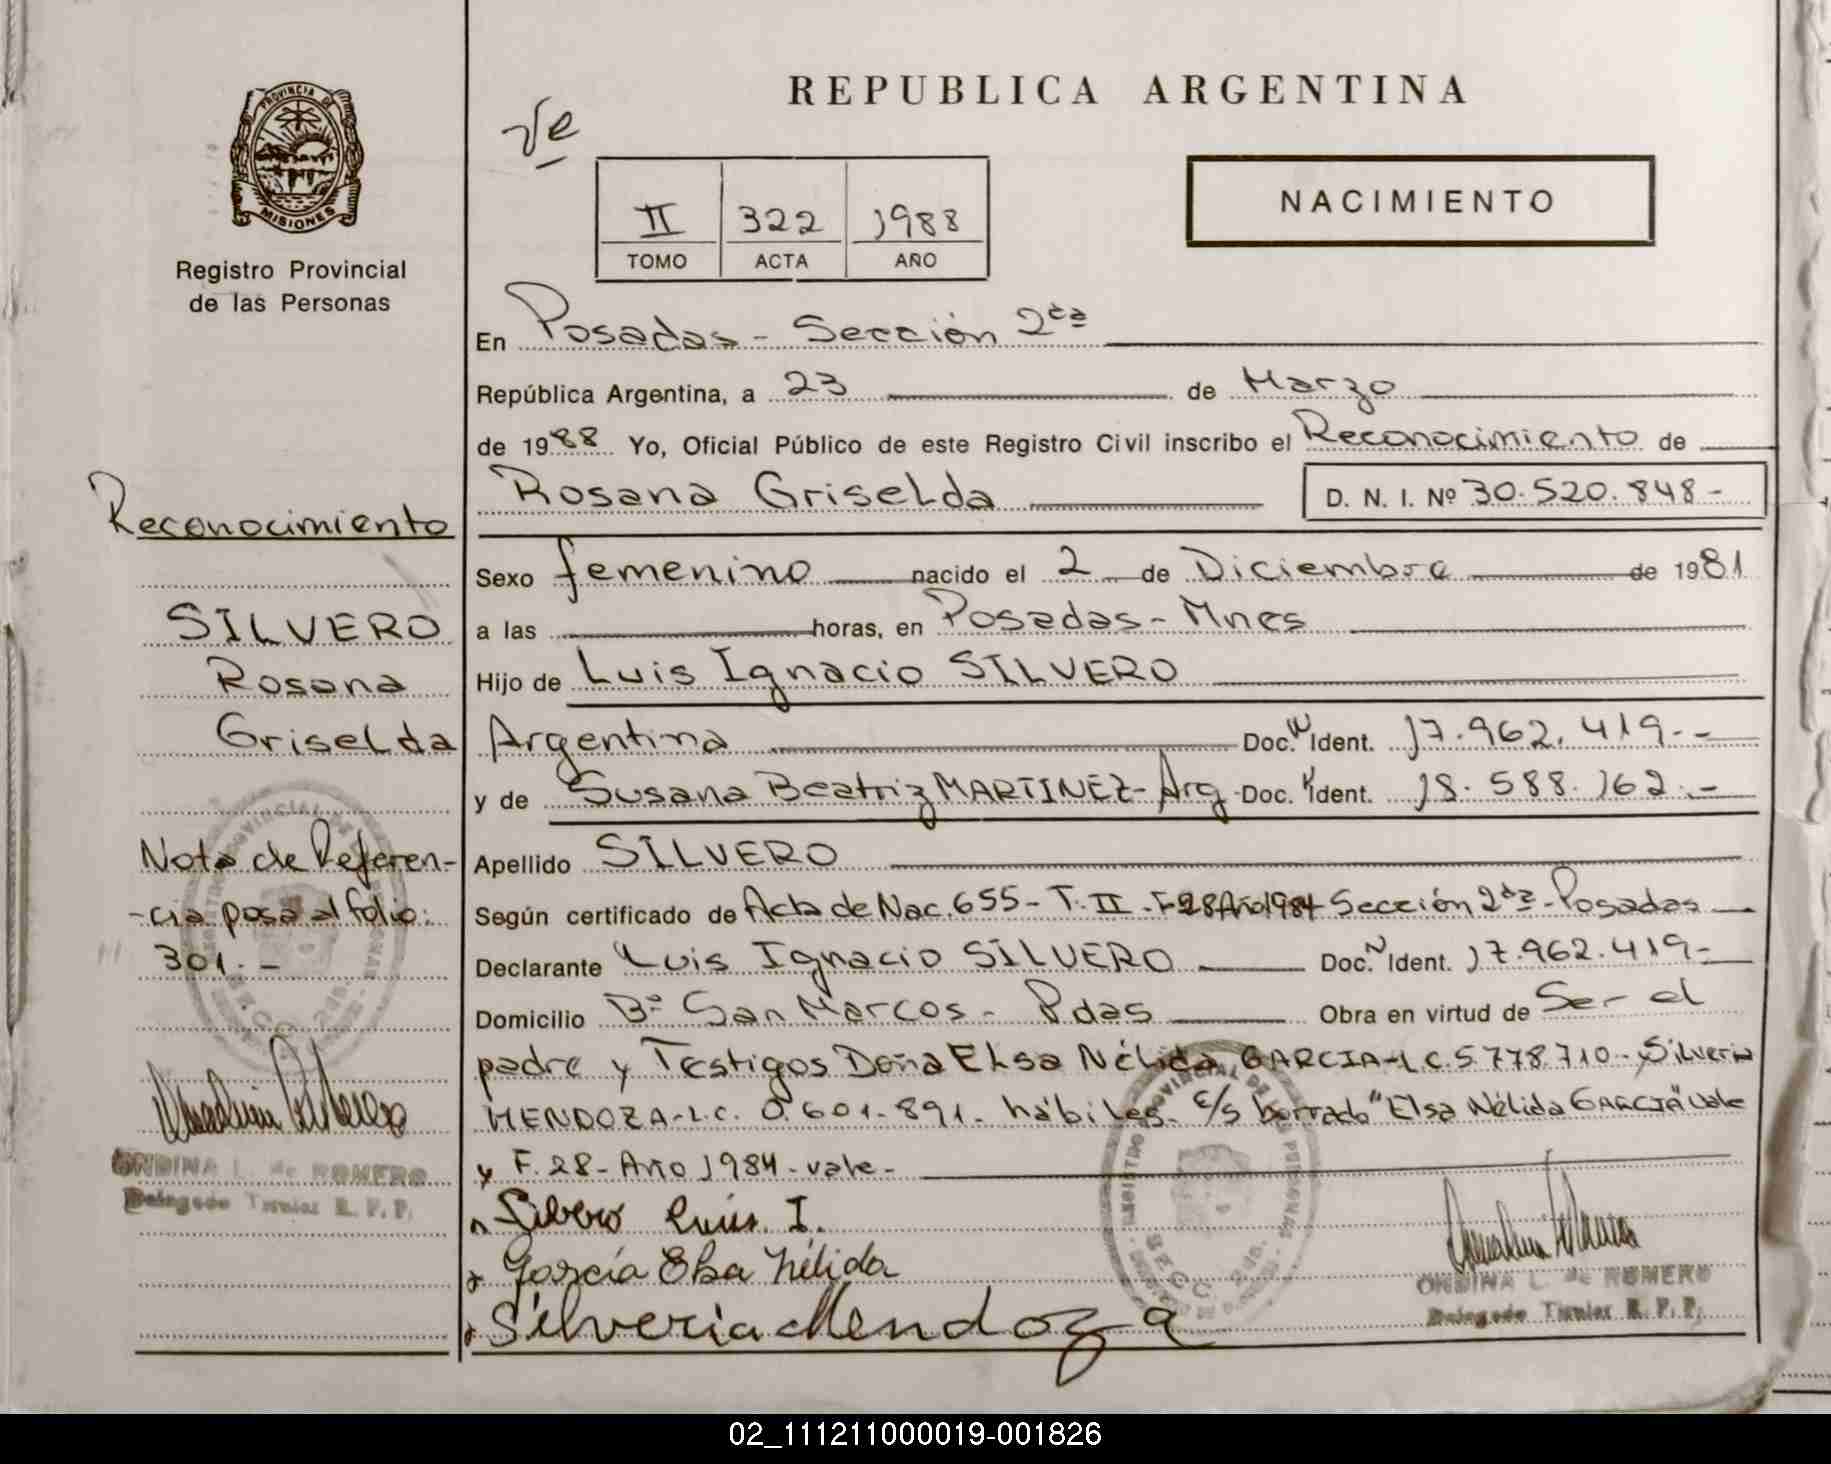 REPUBLICA ARGENTINA
PROVINCIA DE
MISIONES
Registro Provincial
de las Personas
Ve
II 322 1988
TOMO ACTA AÑO
NACIMIENTO
En Posadas - Sección 2da
República Argentina, a 23 de Marzo
de 1988 Yo, Oficial Público de este Registro Civil inscribo el Reconocimiento de
Rosana Griselda D. N. I. Nº 30.520.848-
Sexo femenino nacido el 2 de Diciembre de 1981
a las horas, en Posadas - Mnes
Hijo de Luis Ignacio SILVERO
Argentina Doc. N Ident. 17.962.419.-
y de Susana Beatriz MARTINEZ - Arg. Doc. N Ident. 18.588.162.-
Apellido SILVERO
Según certificado de Acta de Nac. 655 - T. II - F 28 Año 1984 Sección 2da - Posadas
Declarante Luis Ignacio SILVERO Doc. N Ident. 17.962.419-
Domicilio Bº San Marcos - Pdas Obra en virtud de Ser el
padre y Testigos Doña Elsa Nélida GARCIA - L.C. 5.778.710 - Silveria
MENDOZA - L.C. 0.601.891 - hábiles. E/s borrado "Elsa Nélida GARCIA" vale
y F. 28 - Año 1984 - vale -
Silvero Luis I.
García Elsa Nélida
Silveria Mendoza
ONDINA L. de ROMERO
Delegado Titular R. P. P.
Reconocimiento
SILVERO
Rosana
Griselda
Nota de Referen-
-cia pasa al folio:
301.-
ONDINA L. de ROMERO
Delegado Titular R. P. P.
02_111211000019-001826